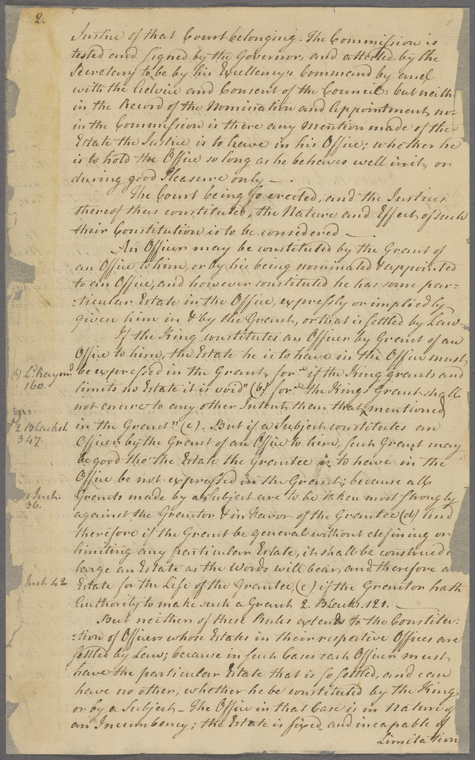 2.
Justice of that Court belonging. The Commission is
tested and signed by the Governor, and attested by the
Secretary to be by his Excellency's Command by and
with the Advice and Consent of the Council: but neith
in the Record of the Nomination and Appointment, nor
in the Commission is there any Mention made of the
Estate the Justice is to have in his Office; whether he
is to hold the Office so long as he behaves well in it, or
during good Pleasure only —.
The Court being so erected, and the Justices
thereof thus constituted, the Nature and Effect of such
their Constitution is to be considered —.
An Officer may be constituted by the Grant of
an Office to him, or by his being nominated & appointed
to an Office, and however constituted he has some par-
-ticular Estate in the Office, expressly or implied by
given him in & by the Grant, or that is settled by Law —
If the King constitutes an Officer by Grant of an
Office to him, the Estate he is to have in the Office must
Ld. Raymd be expressed in the Grant, for "if the King grants and
160. limits no Estate it is void" (b) for "the Kings Grant shall
not enure to any other Intent than that mentioned
2 Blackst. in the Grant" (c). But if a Subject constitutes an
347. Officer by the Grant of an Office to him, such Grant may
be good tho' the Estate the Grantee is to have in the
Office be not expressed in the Grant; because all
1 Inst. Grants made by a Subject are to be taken most strongly
36. against the Grantor & in Favor of the Grantee (d) and
therefore if the Grant be general without defining or
limiting any particular Estate, it shall be construed
large an Estate as the Words will bear, and therefore an
Inst. 42 Estate for the Life of the Grantee, (e) if the Grantor hath
Authority to make such a Grant. 2 Black. 121.
But neither of these Rules extends to the Constitu-
-tion of Officers whose Estates in their respective Offices are
settled by Law; because in such Cases each Officer must
have the particular Estate that is so settled, and can
have no other, whether he be constituted by the King
or by a Subject. The Office in that Case is in Nature of
an Incumbency; the Estate is fixed and incapable of
Limitation